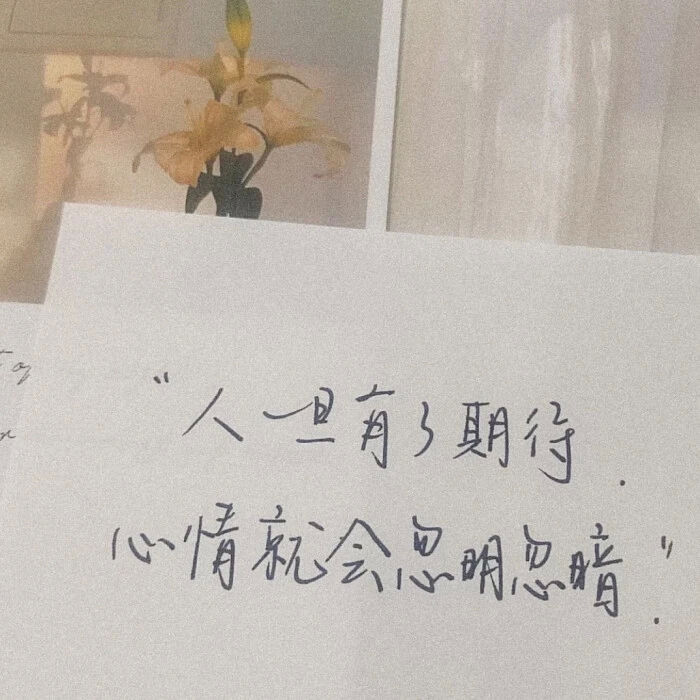 "人一旦有了期待.
心情就会忽明忽暗."